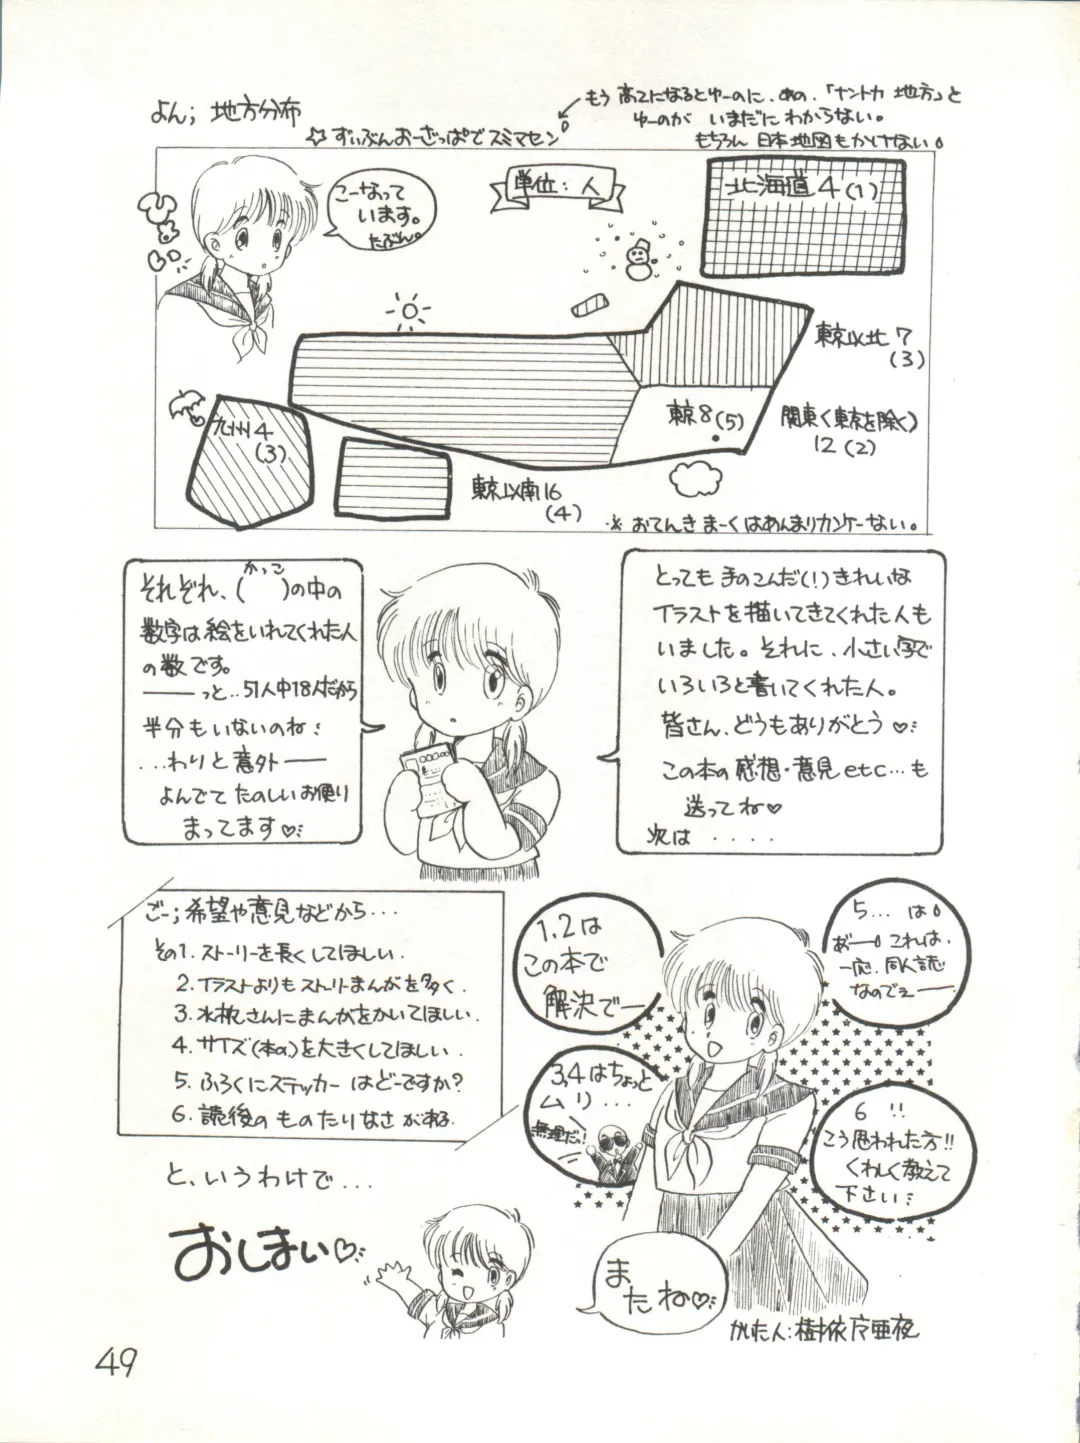 よん; 地方分布
もう 高2になるとゆーのに、あの、「ナントカ 地方」と
ゆーのが いまだに わからない。
もちろん 日本地図もかけない
☆ ずいぶんおーざっぱで スミマセン
こーなって
います。
たぶん。
単位: 人
北海道 4 (1)
東京以北 7
(3)
東京 8 (5)
関東(東京を除く)
12 (2)
九州 4
(3)
東京以南 16
(4)
※ おてんき まーくはあんまりカンケーない。
かっこ
それぞれ、( )の中の
数字は絵をいれてくれた人
の数です。
――っと‥51人中18人だから
半分もいないのね
...わりと意外――
よんでて たのしいお便り
まってます♡
とっても 手のこんだ(!)きれいな
イラストを描いてきてくれた人も
いました。それに、小さい字で
いろいろと書いてくれた人。
皆さん、どうもありがとう♡
この本の感想・意見etc...も
送ってね♡
次は ‥‥
ごー; 希望や意見などから...
その1. ストーリーを長くしてほしい.
2. イラストよりもストーリーまんがを多く.
3. 水枕さんにまんがをかいてほしい.
4. サイズ(本の)を大きくしてほしい.
5. ふろくにステッカー はどーですか?
6. 読後の ものたりなさがある.
1,2は
この本で
解決で―
3,4はちょっと
ムリ...
無理だ!
5... は
あ゛ー これは、
一応、同人誌
なのでえ――
6 !!
こう思われた方!!
くわしく教えて
下さい
と、いうわけで...
おしまい♡
また ね♡
かいた人: 樹依片亜夜
49